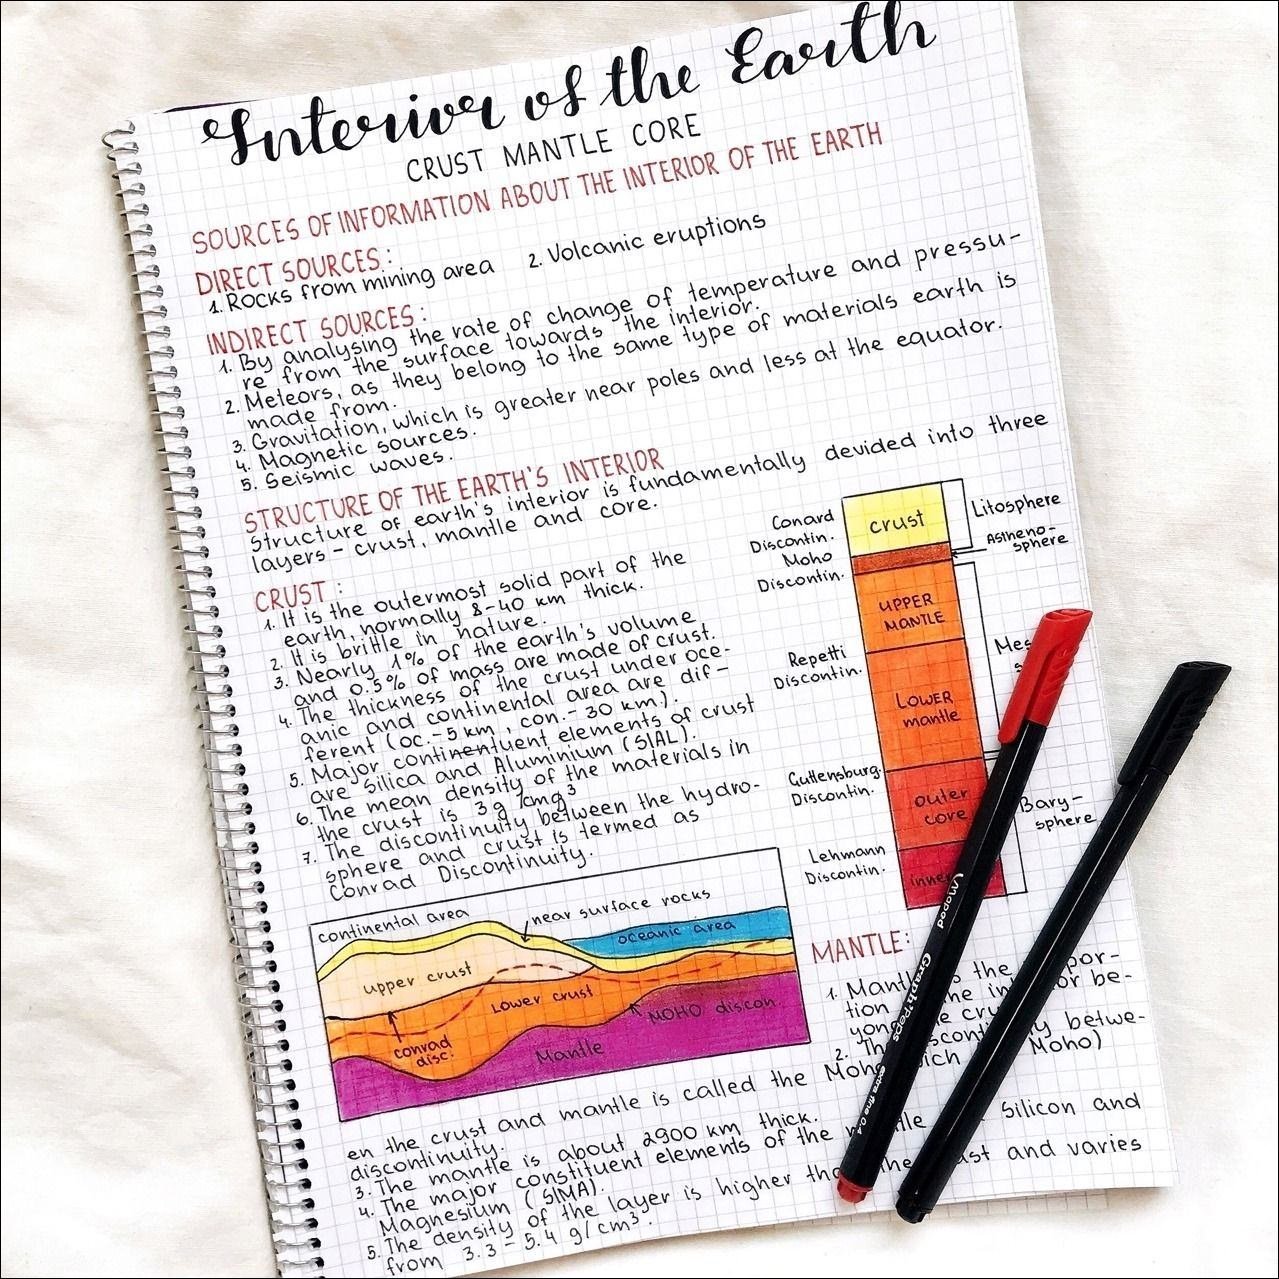 Interior of the Earth
CRUST MANTLE CORE
SOURCES OF INFORMATION ABOUT THE INTERIOR OF THE EARTH
DIRECT SOURCES:
1. Rocks from mining area 2. Volcanic eruptions
INDIRECT SOURCES:
1. By analysing the rate of change of temperature and pressu-
re from the surface towards the interior.
2. Meteors, as they belong to the same type of materials earth is
made from.
3. Gravitation, which is greater near poles and less at the equator.
4. Magnetic sources.
5. Seismic waves.
STRUCTURE OF THE EARTH'S INTERIOR
Structure of earth's interior is fundamentally devided into three
layers - crust, mantle and core.
CRUST:
1. It is the outermost solid part of the
earth, normally 8-40 km thick.
2. It is brittle in nature.
3. Nearly 1% of the earth's volume
and 0.5% of mass are made of crust.
4. The thickness of the crust under oce-
anic and continental area are dif-
ferent (oc.-5 km, con.-30 km).
5. Major continentuent elements of crust
are Silica and Aluminium (SIAL).
6. The mean density of the materials in
the crust is 3g/cmg³
7. The discontinuity between the hydro-
sphere and crust is termed as
Conrad Discontinuity.
Conard
Discontin.
Moho
Discontin.
Repetti
Discontin.
Guttensburg.
Discontin.
Lehmann
Discontin.
crust
UPPER
MANTLE
LOWER
mantle
outer
core
inner
Litosphere
Astheno-
sphere
Mes
Bary-
sphere
continental area
near surface rocks
oceanic area
upper crust
Lower crust
conrad
disc.
MOHO discon.
Mantle
MANTLE:
1. Mant the por-
tion be-
yon
2. Th betwe-
en the crust and mantle is called the Moho Moho)
discontinuity.
3. The mantle is about 2900 km thick.
4. The major constituent elements of the Silicon and
Magnesium (SIMA).
5. The density of the layer is higher and varies
from 3.3 - 5.4 g/cm³.
Graph'Peps
extra fine 0.4